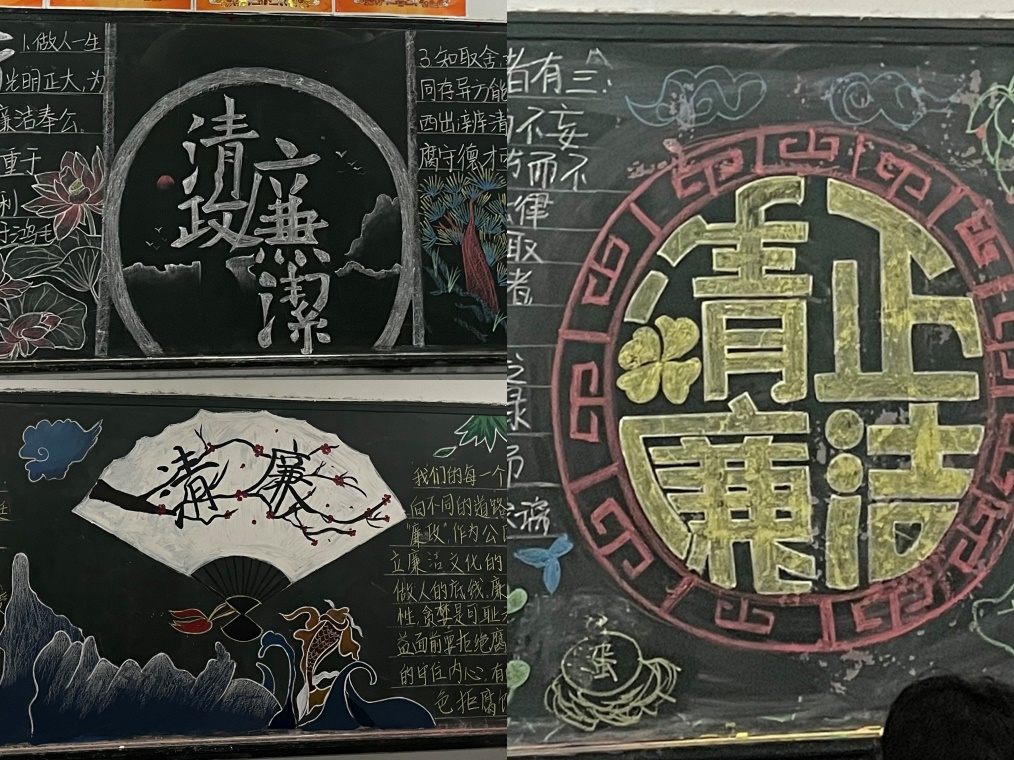 1.做人一生
光明正大,为
廉洁奉公。
重于
利
于鸿毛
清政
廉潔
3.知取舍
同存异方能
西出淖岸清
腐守德才
清廉
我们的每一个
向不同的道路
"廉政"作为公
立廉洁文化的
做人的底线,廉
性,贪婪是可耻
益面前要拒绝腐
的牢位内心,有
色拒腐
者有三:
不妄
而不
律
取
者
之
禄
而
正
清
洁
廉
蛋